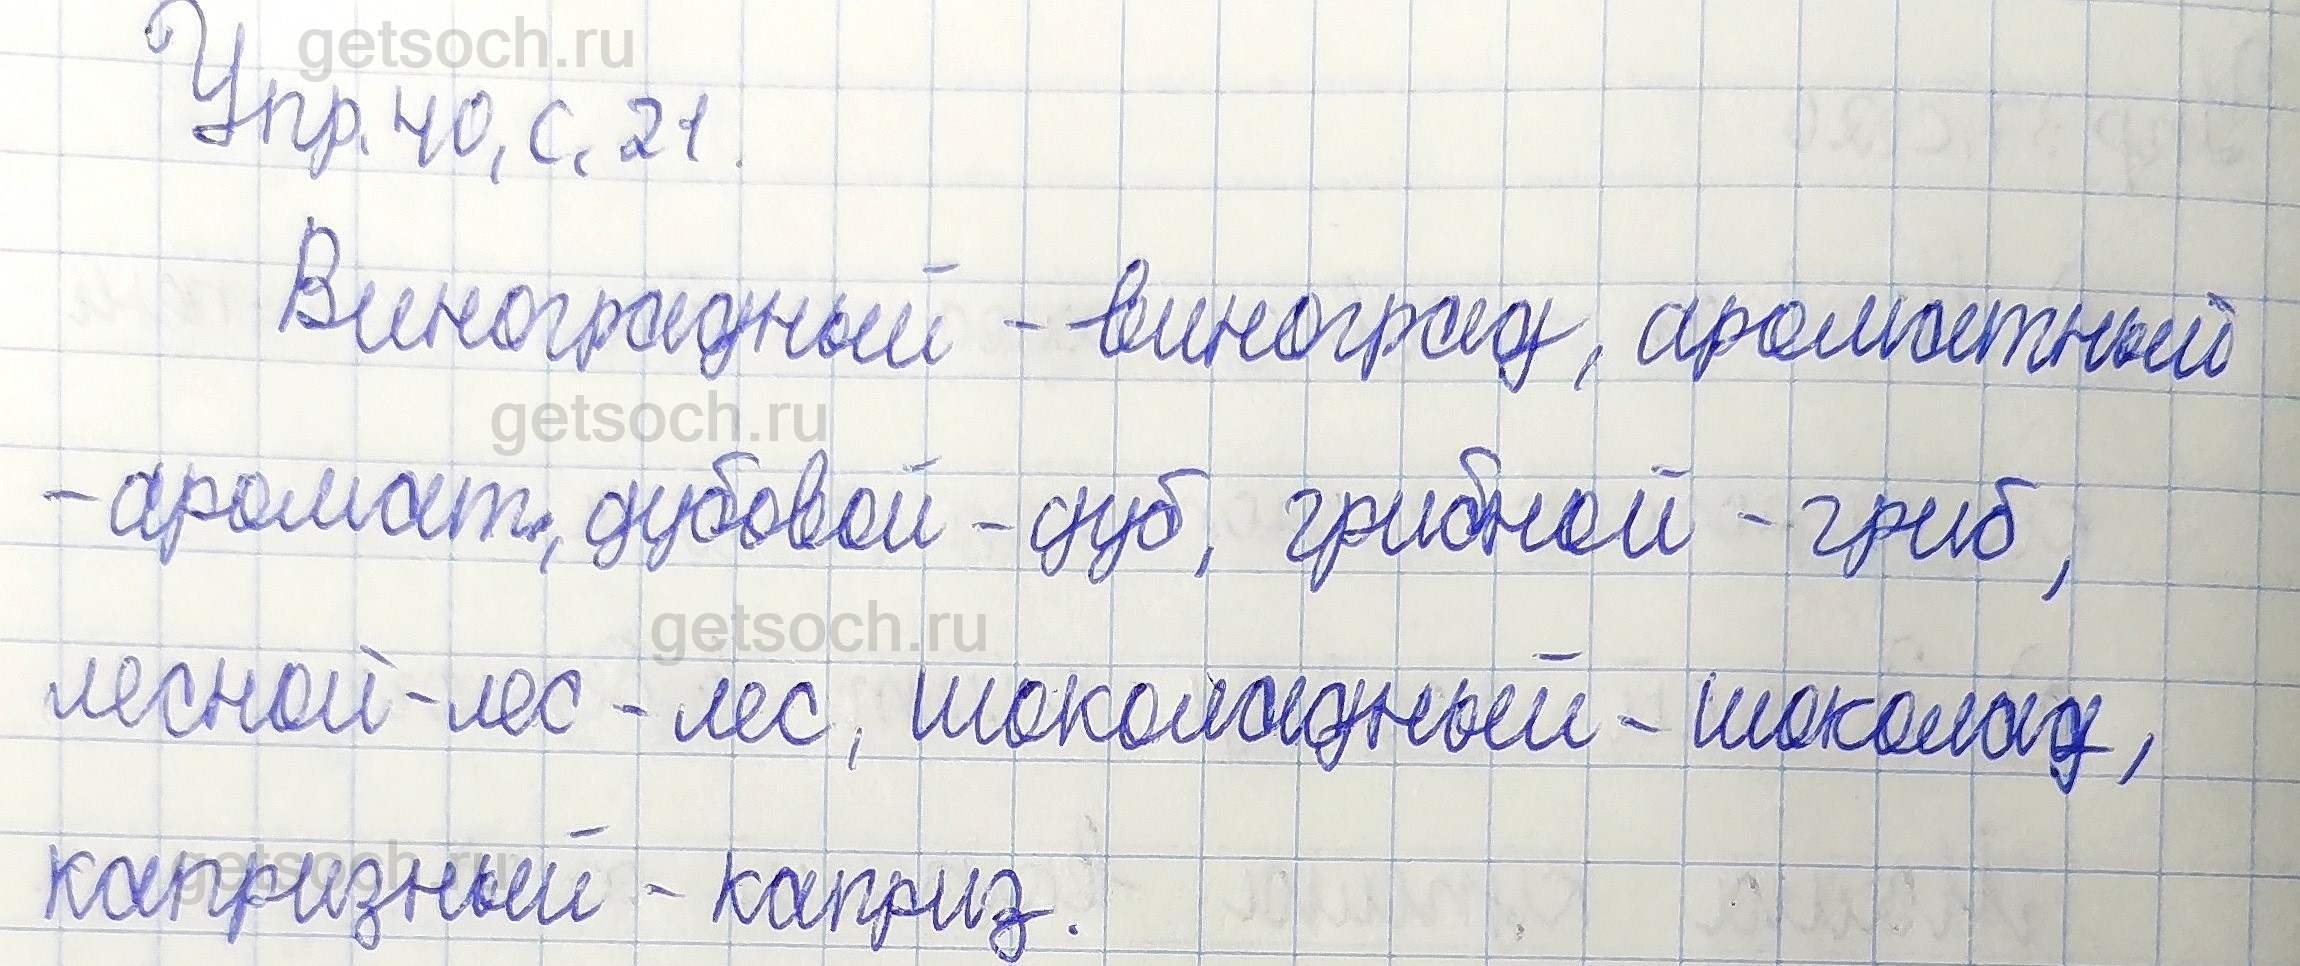 getsoch.ru
Упр. 40, с. 21.
Виноградный - виноград, ароматный
getsoch.ru
- аромат, дубовой - дуб, грибной - гриб,
getsoch.ru
лесной - лес - лес, шоколадный - шоколад,
getsoch.ru
капризный - каприз.